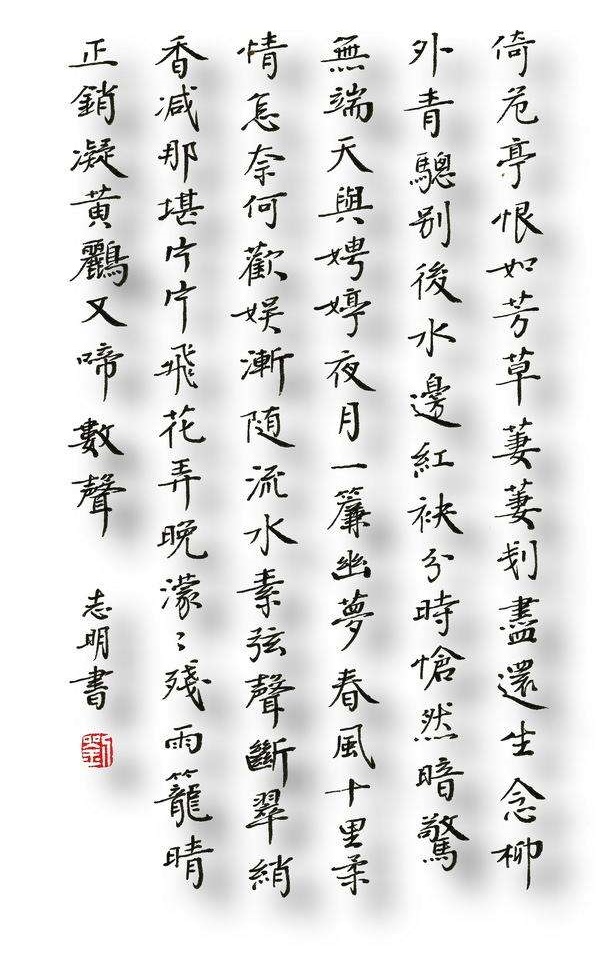 倚危亭恨如芳草萋萋刬盡還生念柳
外青驄别後水邊紅袂分時愴然暗驚
無端天與娉婷夜月一簾幽夢春風十里柔
情怎奈何歡娱漸随流水素弦聲斷翠綃
香减那堪片片飛花弄晚濛〻残雨籠晴
正銷凝黄鸝又啼數聲
志明書
劉